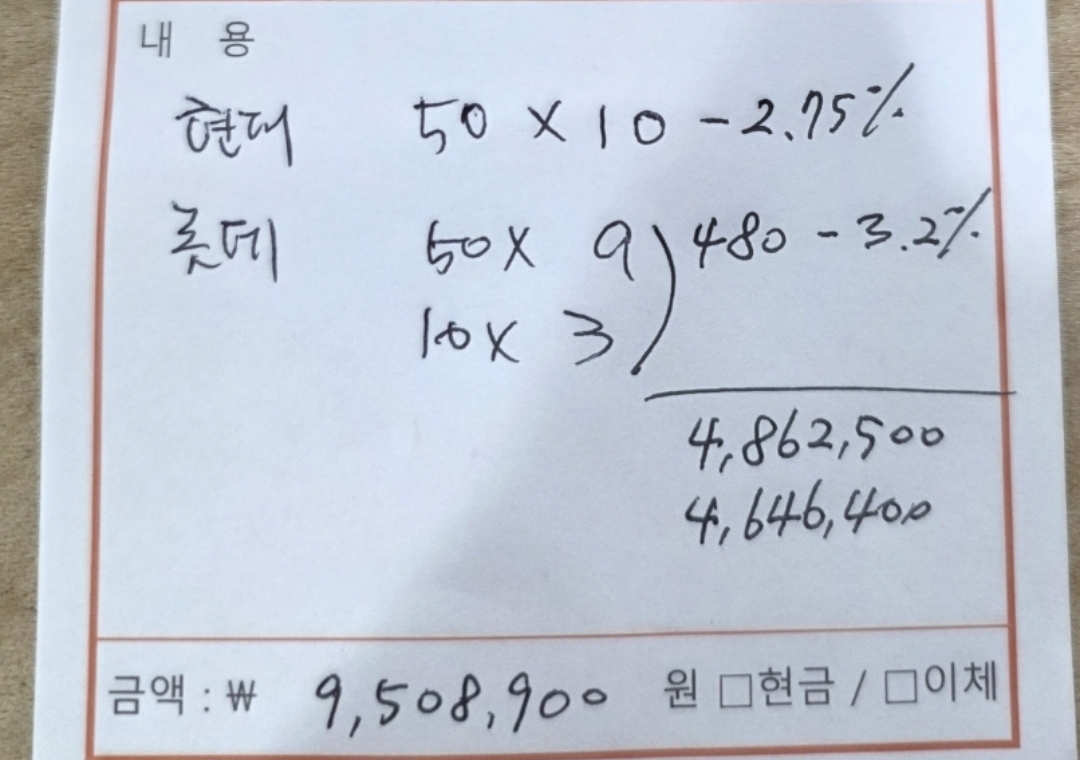 내 용
현대 50 X 10 - 2.75%
롯데 50 X 9 ) 480 - 3.2%
10 X 3
4,862,500
4,646,400
금액 : ₩ 9,508,900 원 □현금 / □이체